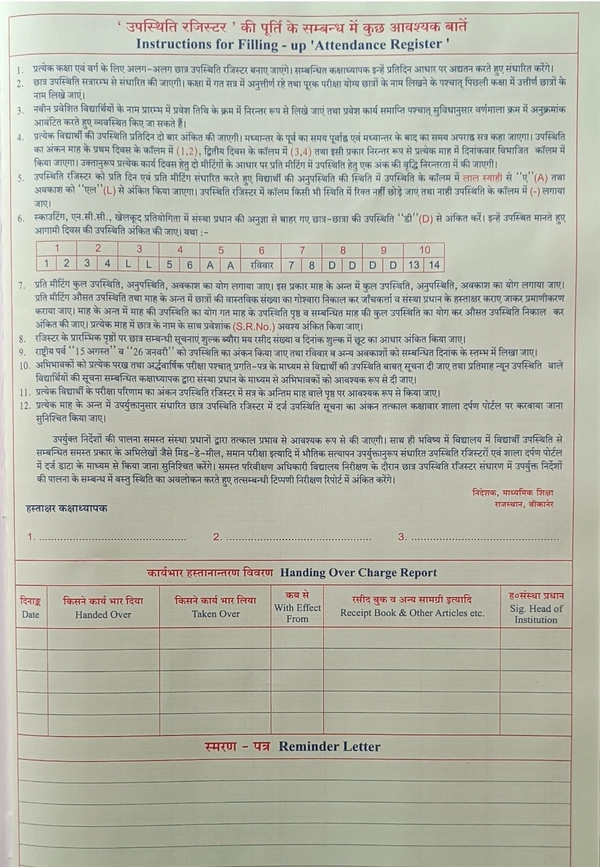 ' उपस्थिति रजिस्टर ' की पूर्ति के सम्बन्ध में कुछ आवश्यक बातें
Instructions for Filling - up 'Attendance Register '
1. प्रत्येक कक्षा एवं वर्ग के लिए अलग-अलग छात्र उपस्थिति रजिस्टर बनाए जाएंगे। सम्बन्धित कक्षाध्यापक इन्हें प्रतिदिन आधार पर अद्यतन करते हुए संधारित करेंगे।
2. छात्र उपस्थिति सत्रारम्भ से संधारित की जाएगी। कक्षा में गत सत्र में अनुत्तीर्ण रहे तथा पूरक परीक्षा योग्य छात्रों के नाम लिखने के पश्चात् पिछली कक्षा में उत्तीर्ण छात्रों के
नाम लिखे जाएं।
3. नवीन प्रवेशित विद्यार्थियों के नाम प्रारम्भ में प्रवेश तिथि के क्रम में निरन्तर रूप से लिखे जाएं तथा प्रवेश कार्य समाप्ति पश्चात् सुविधानुसार वर्णमाला क्रम में अनुक्रमांक
आवंटित करते हुए व्यवस्थित किए जा सकते हैं।
4. प्रत्येक विद्यार्थी की उपस्थिति प्रतिदिन दो बार अंकित की जाएगी। मध्यान्तर के पूर्व का समय पूर्वाह्न एवं मध्यान्तर के बाद का समय अपराह्न सत्र कहा जाएगा। उपस्थिति
का अंकन माह के प्रथम दिवस के कॉलम में (1,2), द्वितीय दिवस के कॉलम में (3,4) तथा इसी प्रकार निरन्तर रूप से प्रत्येक माह में दिनांकवार विभाजित कॉलम में
किया जाएगा। उक्तानुरूप प्रत्येक कार्य दिवस हेतु दो मीटिंगों के आधार पर प्रति मीटिंग में उपस्थिति हेतु एक अंक की वृद्धि निरन्तरता में की जाएगी।
5. उपस्थिति रजिस्टर को प्रति दिन एवं प्रति मीटिंग संधारित करते हुए विद्यार्थी की अनुपस्थिति की स्थिति में उपस्थिति के कॉलम में लाल स्याही से ''ए''(A) तथा
अवकाश को ''एल''(L) से अंकित किया जाएगा। उपस्थिति रजिस्टर में कॉलम किसी भी स्थिति में रिक्त नहीं छोड़े जाएं तथा नाही उपस्थिति के कॉलम में (-) लगाया
जाए।
6. स्काउटिंग, एन.सी.सी., खेलकूद प्रतियोगिता में संस्था प्रधान की अनुज्ञा से बाहर गए छात्र-छात्रा की उपस्थिति ''डी''(D) से अंकित करें। इन्हें उपस्थित मानते हुए
आगामी दिवस की उपस्थिति अंकित की जाए। यथा :-
1 2 3 4 5 6 7 8 9 10
1 2 3 4 L L 5 6 A A रविवार 7 8 D D D D 13 14
7. प्रति मीटिंग कुल उपस्थिति, अनुपस्थिति, अवकाश का योग लगाया जाए। इस प्रकार माह के अन्त में कुल उपस्थिति, अनुपस्थिति, अवकाश का योग लगाया जाए।
प्रति मीटिंग औसत उपस्थिति तथा माह के अन्त में छात्रों की वास्तविक संख्या का गोश्वारा निकाल कर जाँचकर्त्ता व संस्था प्रधान के हस्ताक्षर कराए जाकर प्रमाणीकरण
कराया जाए। माह के अन्त में माह की उपस्थिति का योग गत माह के उपस्थिति पृष्ठ व सम्बन्धित माह की कुल उपस्थिति का योग कर औसत उपस्थिति निकाल कर
अंकित की जाए। प्रत्येक माह में छात्र के नाम के साथ प्रवेशांक (S.R.No.) अवश्य अंकित किया जाए।
8. रजिस्टर के प्रारम्भिक पृष्ठों पर छात्र सम्बन्धी सूचनाएं शुल्क ब्यौरा मय रसीद संख्या व दिनांक शुल्क में छूट का आधार अंकित किया जाए।
9. राष्ट्रीय पर्व ''15 अगस्त'' व ''26 जनवरी'' को उपस्थिति का अंकन किया जाए तथा रविवार व अन्य अवकाशों को सम्बन्धित दिनांक के स्तम्भ में लिखा जाए।
10. अभिभावकों को प्रत्येक परख तथा अर्द्धवार्षिक परीक्षा पश्चात् प्रगति-पत्र के माध्यम से विद्यार्थी की उपस्थिति बाबत् सूचना दी जाए तथा प्रतिमाह न्यून उपस्थिति वाले
विद्यार्थियों की सूचना सम्बन्धित कक्षाध्यापक द्वारा संस्था प्रधान के माध्यम से अभिभावकों को आवश्यक रूप से दी जाए।
11. प्रत्येक विद्यार्थी के परीक्षा परिणाम का अंकन उपस्थिति रजिस्टर में सत्र के अन्तिम माह वाले पृष्ठ पर आवश्यक रूप से किया जाए।
12. प्रत्येक माह के अन्त में उपर्युक्तानुसार संधारित छात्र उपस्थिति रजिस्टर में दर्ज उपस्थिति सूचना का अंकन तत्काल कक्षावार शाला दर्पण पोर्टल पर करवाया जाना
सुनिश्चित किया जाए।
उपर्युक्त निर्देशों की पालना समस्त संस्था प्रधानों द्वारा तत्काल प्रभाव से आवश्यक रूप से की जाएगी। साथ ही भविष्य में विद्यालय में विद्यार्थी उपस्थिति से
सम्बन्धित समस्त प्रकार के अभिलेखों जैसे मिड-डे-मील, समान परीक्षा इत्यादि में भौतिक सत्यापन उपर्युक्तानुरूप संधारित उपस्थिति रजिस्टरों एवं शाला दर्पण पोर्टल
में दर्ज डाटा के माध्यम से किया जाना सुनिश्चित करेंगे। समस्त परिवीक्षण अधिकारी विद्यालय निरीक्षण के दौरान छात्र उपस्थिति रजिस्टर संधारण में उपर्युक्त निर्देशों
की पालना के सम्बन्ध में वस्तु स्थिति का अवलोकन करते हुए तत्सम्बन्धी टिप्पणी निरीक्षण रिपोर्ट में अंकित करेंगे।
निदेशक, माध्यमिक शिक्षा
राजस्थान, बीकानेर
हस्ताक्षर कक्षाध्यापक
1. .................... 2. .................... 3. ....................
कार्यभार हस्तानान्तरण विवरण Handing Over Charge Report
दिनाङ्क किसने कार्य भार दिया किसने कार्य भार लिया कब से रसीद बुक व अन्य सामग्री इत्यादि ह०संस्था प्रधान
Date Handed Over Taken Over With Effect From Receipt Book & Other Articles etc. Sig. Head of Institution
स्मरण - पत्र Reminder Letter